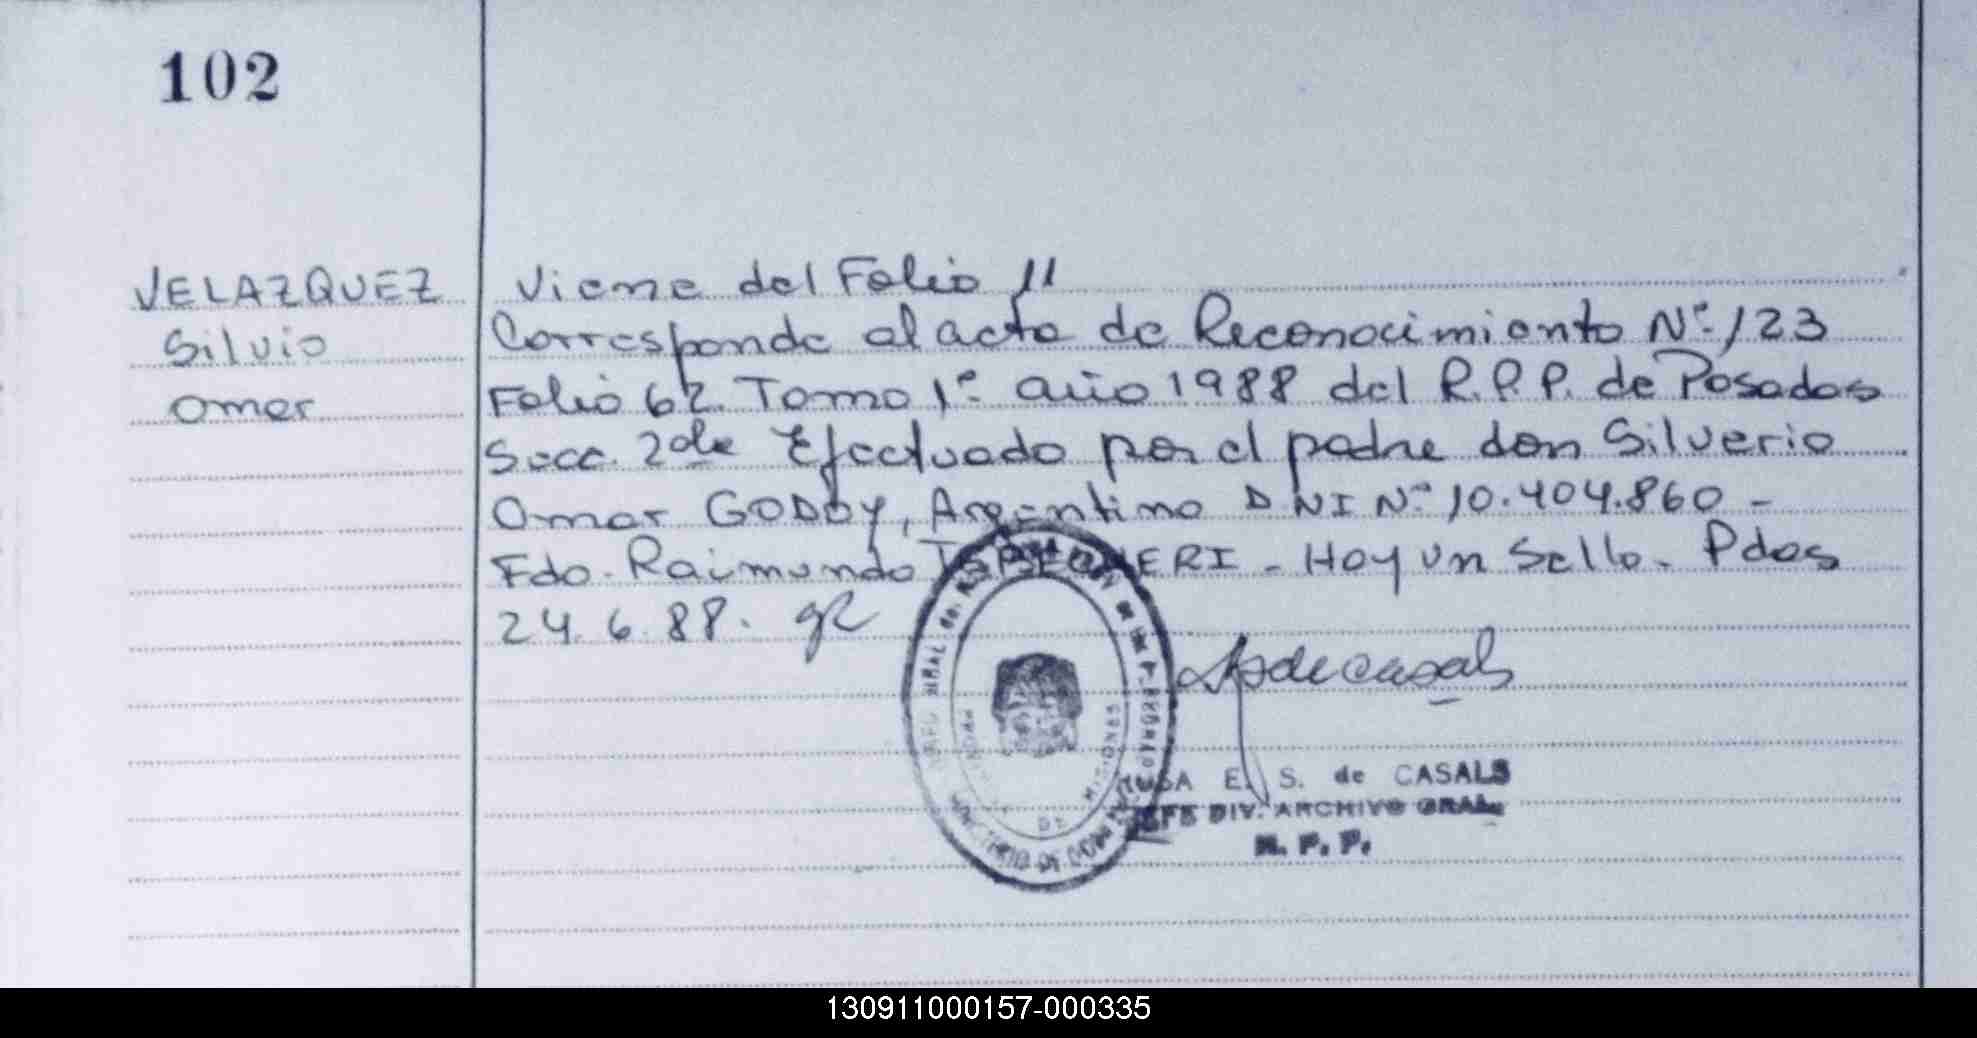 102
VELAZQUEZ
Silvio
Omar
Viene del Folio 11
Corresponde al acta de Reconocimiento Nº 123
Folio 62. Tomo 1º Año 1988 del R.P.P. de Posadas
Secc. 2da Efectuado por el padre don Silverio
Omar GODOY, Argentino DNI Nº 10.404.860 -
Fdo. Raimundo - Hay un Sello. Pdas
24.6.88.
PROVINCIA DE MISIONES
E. S. de CASALS
JEFE DIV. ARCHIVO GRAL.
R. P. P.
130911000157-000335